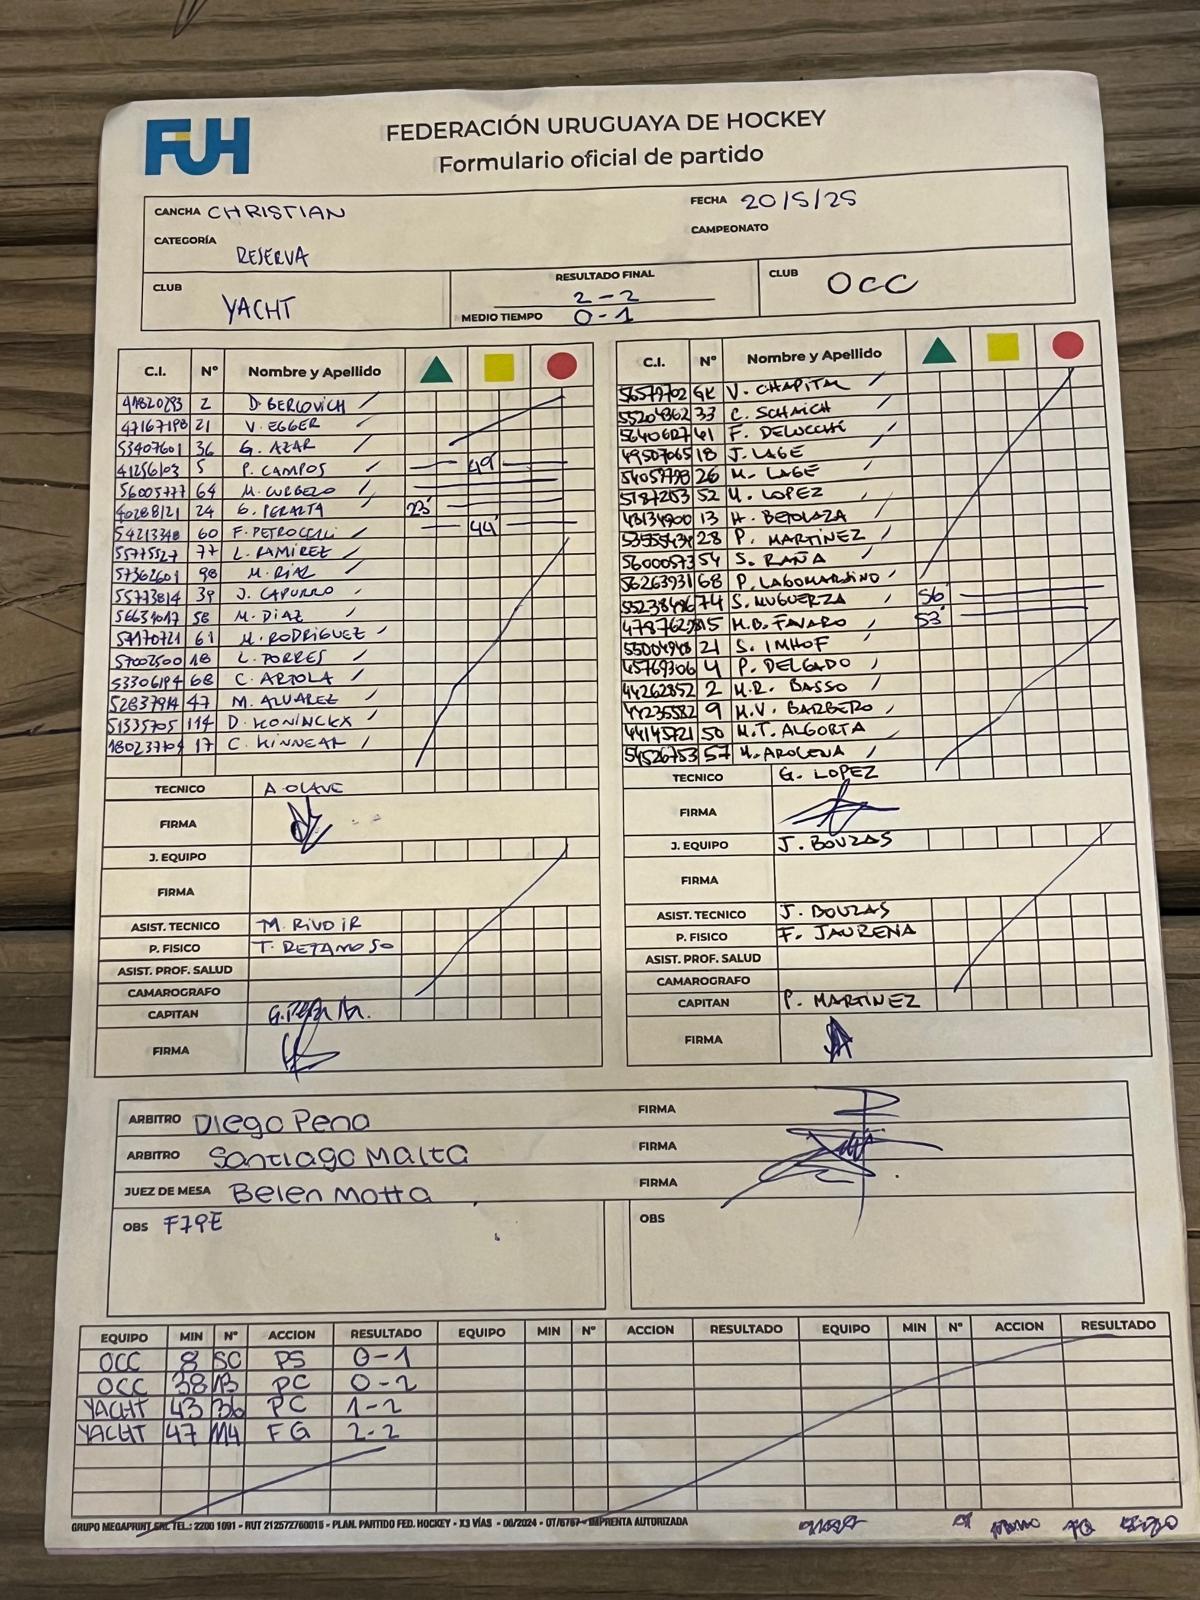 FUH
FEDERACIÓN URUGUAYA DE HOCKEY
Formulario oficial de partido
CANCHA CHRISTIAN
FECHA 20/5/25
CATEGORÍA RESERVA
CAMPEONATO
CLUB YACHT
RESULTADO FINAL 2-2
MEDIO TIEMPO 0-1
CLUB OCC
C.I. N° Nombre y Apellido
41820293 2 D. BERLOVICH
47167198 21 V. EGGER
53407601 36 G. AZAR
41256103 5 P. CAMPOS 49'
56005777 64 M. CURBELO
40288121 24 G. PERALTA 23'
54213348 60 F. PETROCELLI 44'
55775527 77 L. RAMIREZ
57362601 98 M. RIAL
55773814 39 J. CAPURRO
56634017 58 M. DIAZ
54170721 61 M. RODRIGUEZ
57002500 18 L. TORRES
53306194 68 C. ARTOLA
52837914 47 M. ALVAREZ
51335705 114 D. KONINCKX
17 C. KINNEAR
TECNICO A. OLAVE
FIRMA
J. EQUIPO
FIRMA
ASIST. TECNICO M. RIVOIR
P. FISICO T. RETAMOSO
ASIST. PROF. SALUD
CAMAROGRAFO
CAPITAN
FIRMA
C.I. N° Nombre y Apellido
56579702 GK V. CHAPITAL
55204362 33 C. SCHAICH
56406127 41 F. DELUCCHI
49507065 18 J. LAGE
54059798 26 M. LAGE
51872253 52 M. LOPEZ
43134900 13 H. BETOLAZA
28 P. MARTINEZ
56000573 54 S. RAÑA
56263931 68 P. LAGOMARSINO
74 S. MUGUERZA 56'
15 M.B. FAVARO 53'
21 S. IMHOF
45769306 4 P. DELGADO
44262852 2 M.R. BASSO
44235582 9 M.V. BARBERO
44145721 50 M.T. ALGORTA
54526753 57 M. AROCENA
TECNICO G. LOPEZ
FIRMA
J. EQUIPO J. BOUZAS
FIRMA
ASIST. TECNICO J. BOUZAS
P. FISICO F. JAURENA
ASIST. PROF. SALUD
CAMAROGRAFO
CAPITAN P. MARTINEZ
FIRMA
ARBITRO Diego Pena FIRMA
ARBITRO Santiago Malta FIRMA
JUEZ DE MESA Belen Motta FIRMA
OBS F79E
OBS
EQUIPO MIN N° ACCION RESULTADO EQUIPO MIN N° ACCION RESULTADO EQUIPO MIN N° ACCION RESULTADO
OCC 8 50 PS 0-1
OCC 38 13 PC 0-2
YACHT 43 36 PC 1-2
YACHT 47 114 FG 2-2
GRUPO MEGAPRINT SRL TEL.: 2200 1091 - RUT 212572760015 - PLAN. PARTIDO FED. HOCKEY - X3 VÍAS - 06/2024 - OT/6767 - IMPRENTA AUTORIZADA